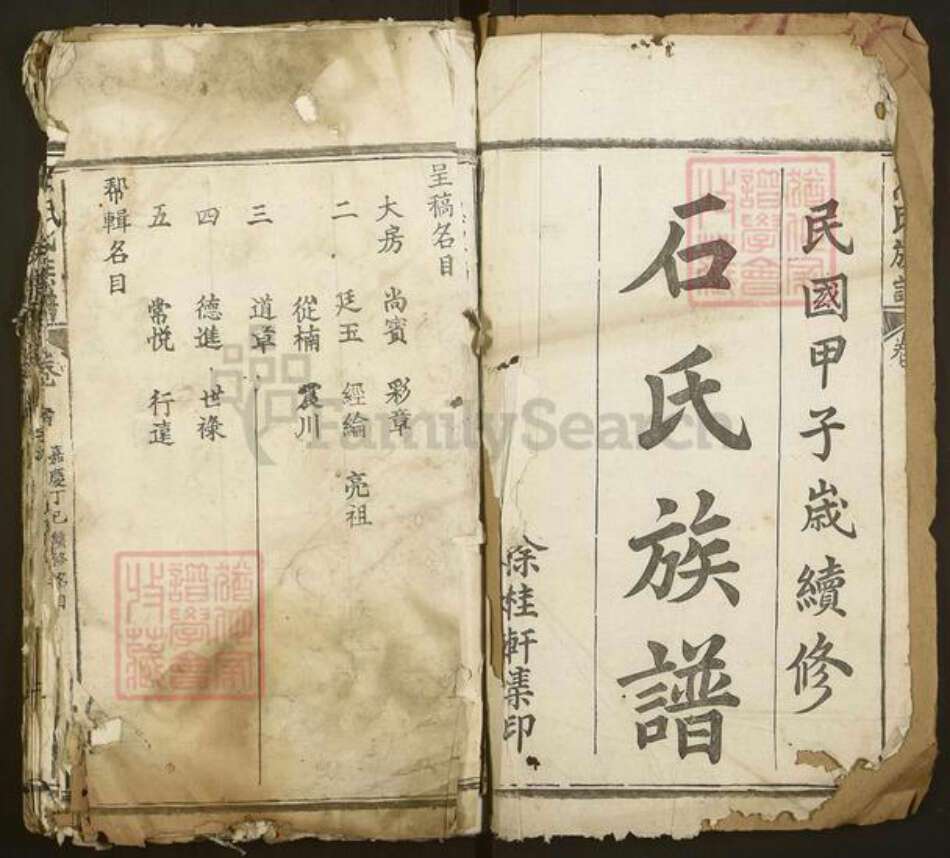 民國甲子歲續修
石氏族譜
徐桂軒集印
呈稿名目
大房 尚賓 彩章
二 廷玉 經綸 亮祖
從楠 震川
三 道章
四 德進 世祿
五 常悅 行達
幇輯名目
嘉慶丁巳續修名目
FamilySearch